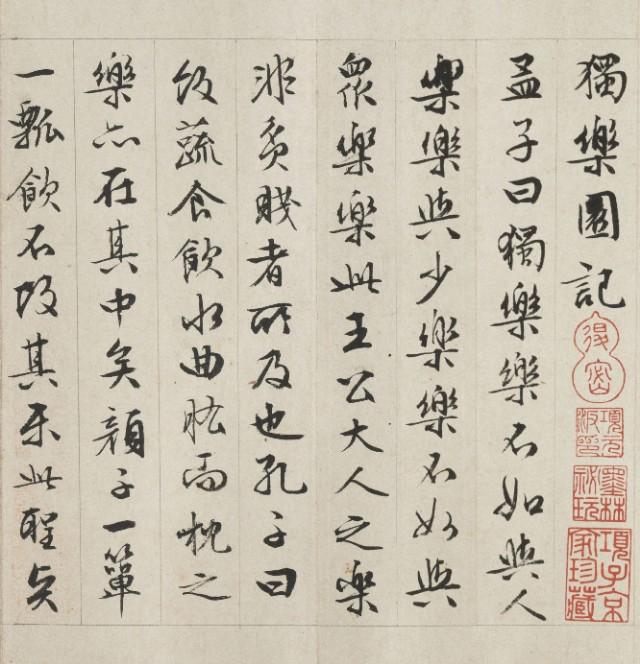 獨樂園記
退密
項元汴印
墨林祕玩
項子京家珍藏
孟子曰獨樂樂不如與人
樂樂與少樂樂不如與
眾樂樂此王公大人之樂
非貧賤者所及也孔子曰
飯蔬食飲水曲肱而枕之
樂亦在其中矣顏子一簞
一瓢飲不改其樂此聖賢